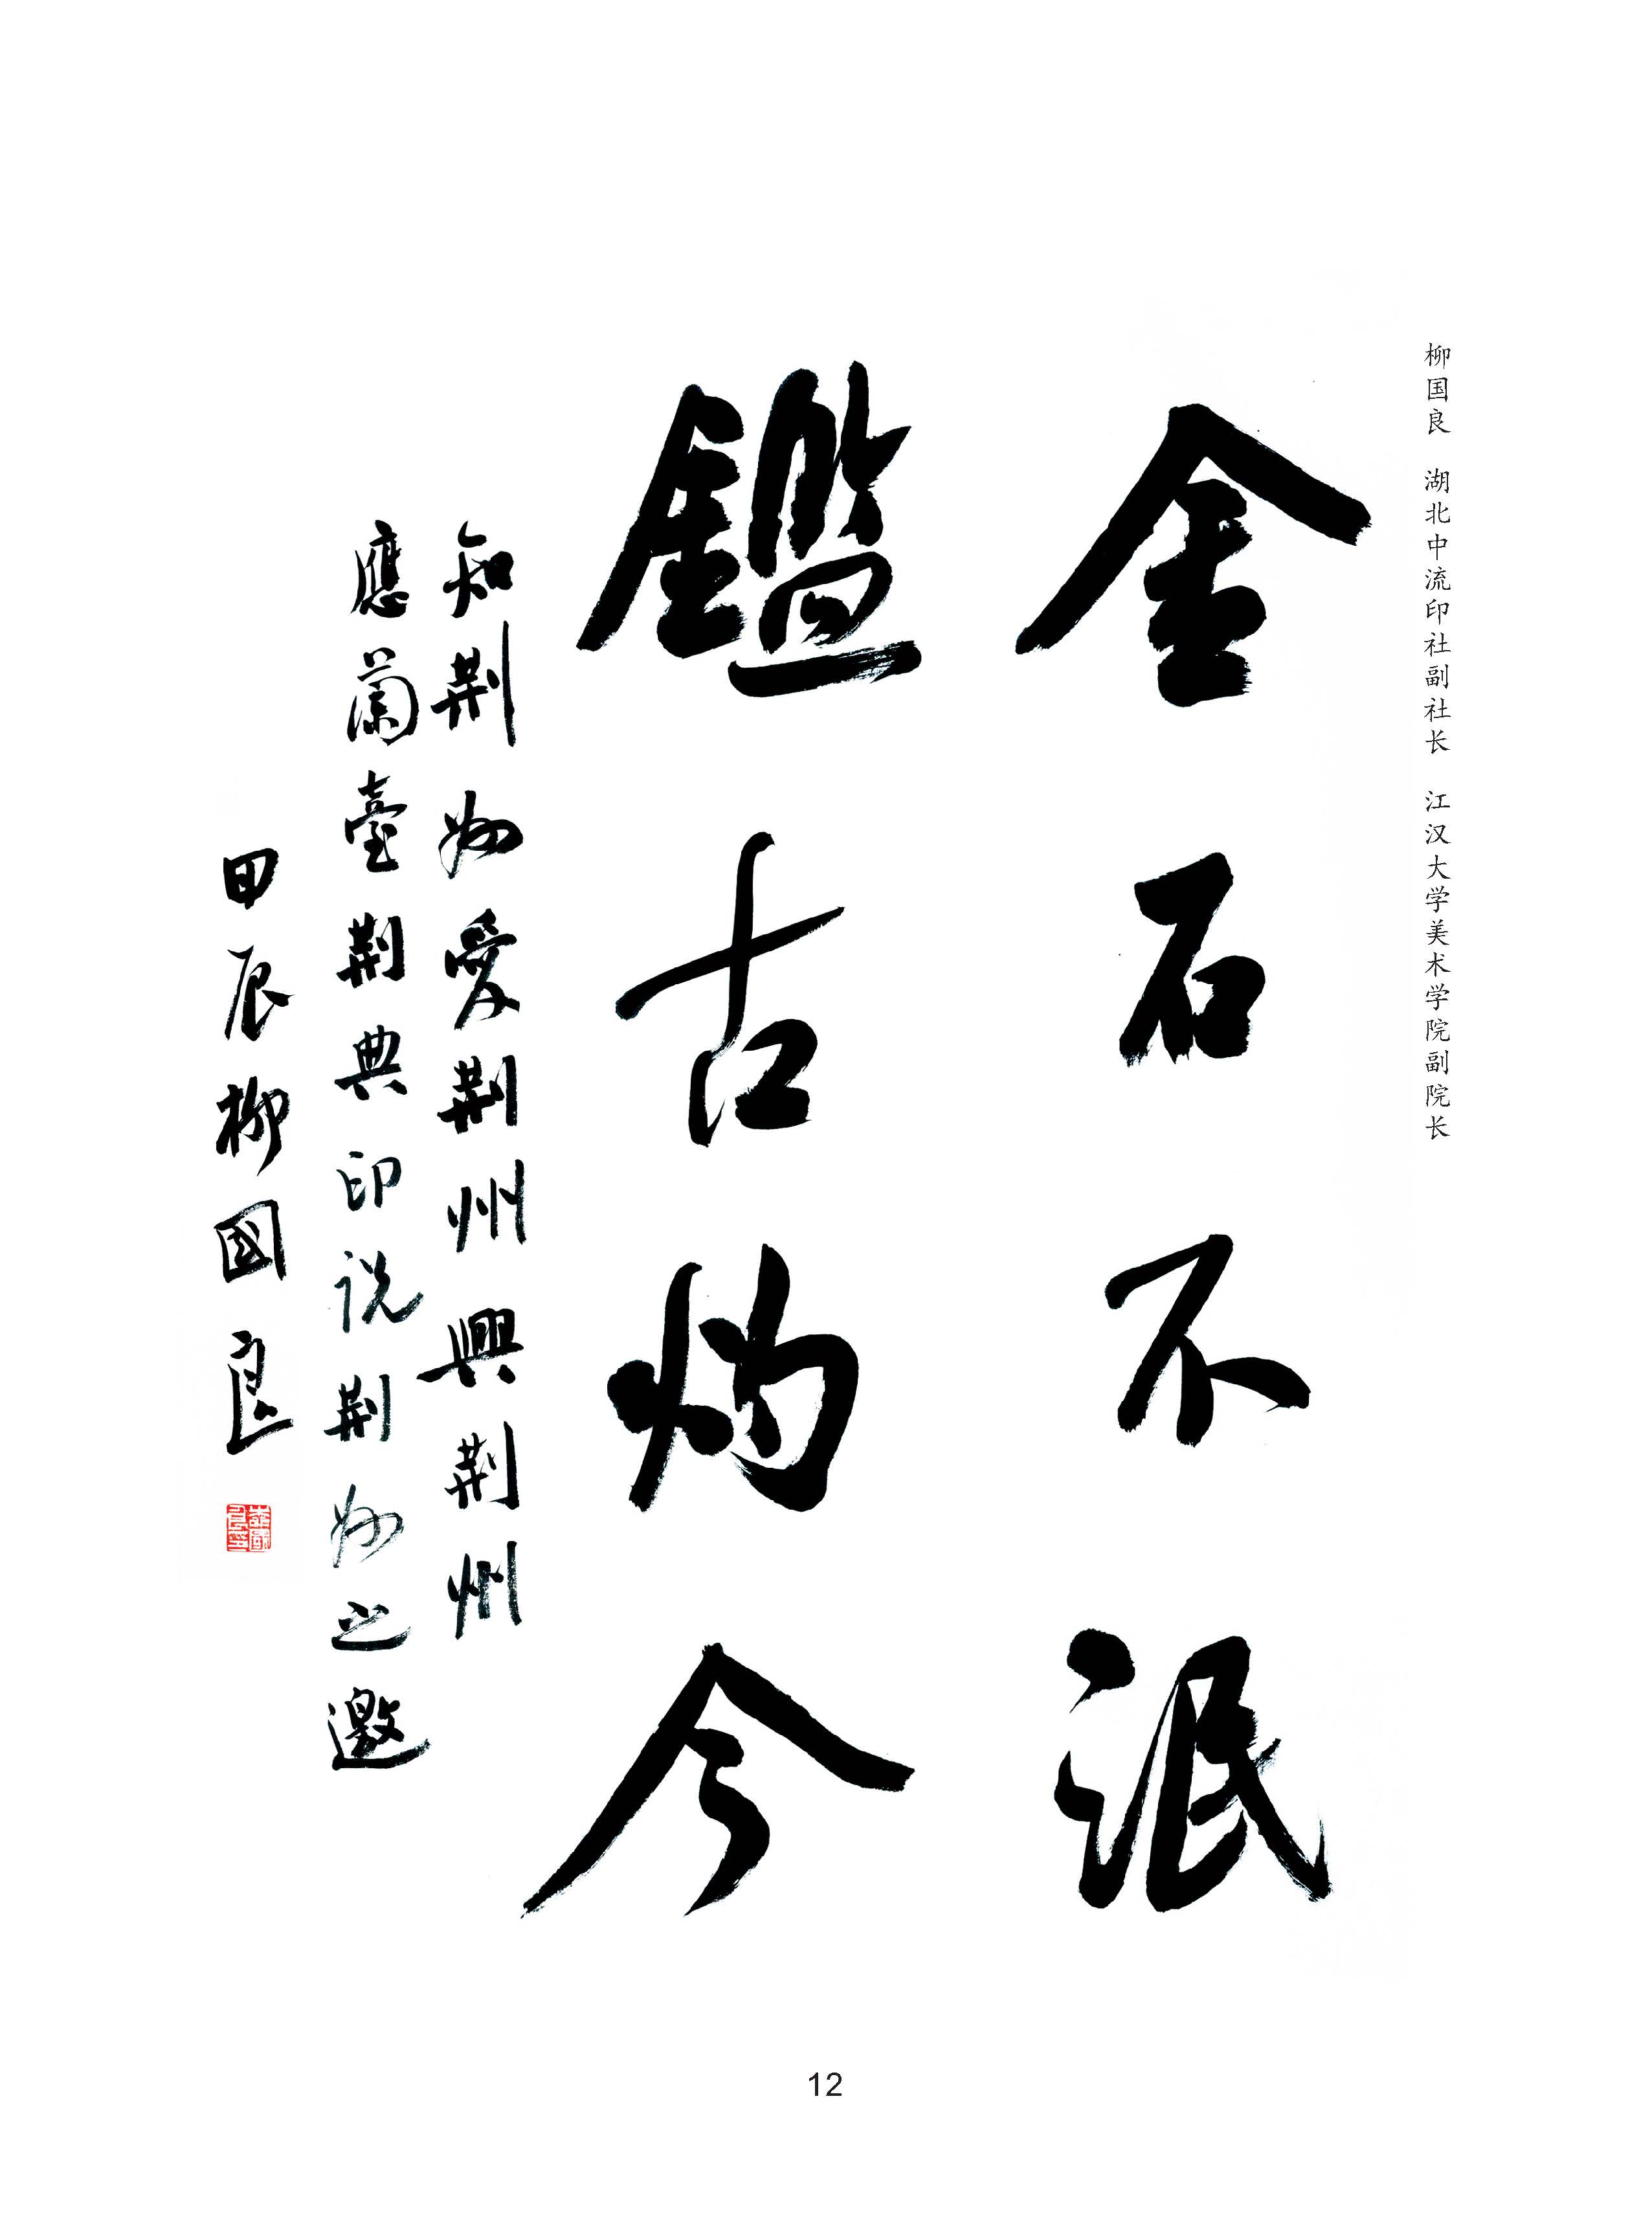 柳国良 湖北中流印社副社长 江汉大学美术学院副院长
金石不泯
鑑古灼今
知荆州爱荆州興荆州
應蘭臺荆典印说荆州之邀
甲辰柳國良
12